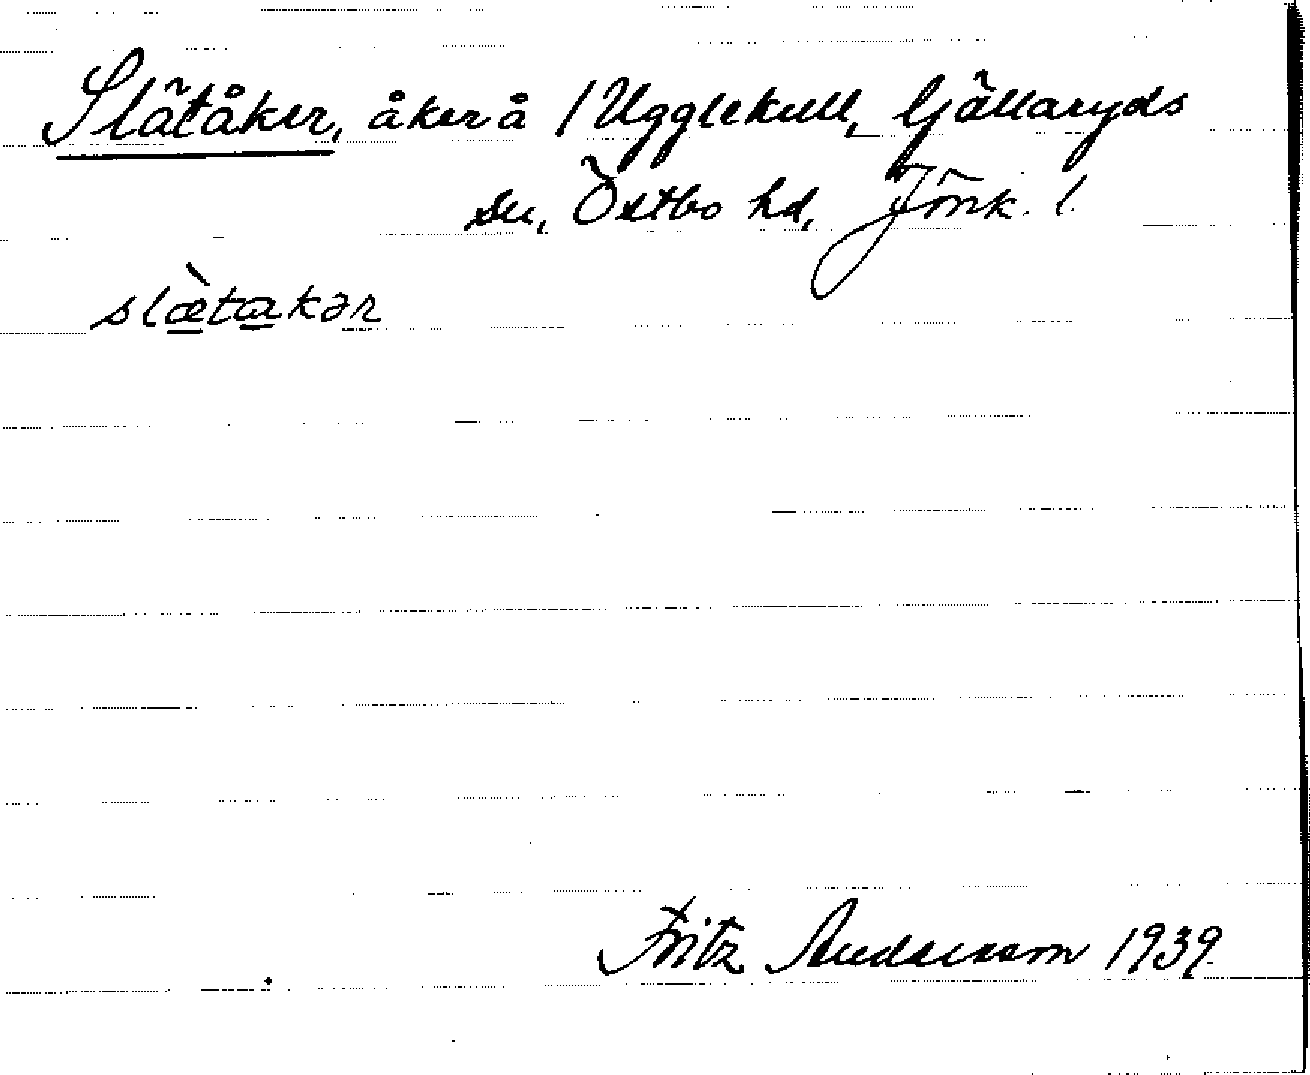 Slätåker, åker å /Ugglekull, Gällaryds
sn, Östbo hd, Jönk. l.
slæ̀takər
Fritz Andersson 1939.